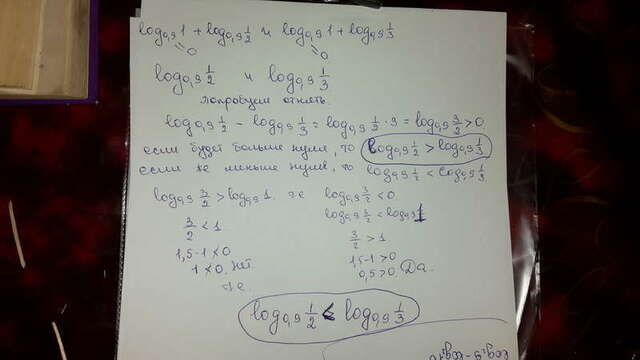 log₀,₉1 + log₀,₉ 1/2 и log₀,₉1 + log₀,₉ 1/3
=0 =0
log₀,₉ 1/2 и log₀,₉ 1/3
попробуем отнять
log₀,₉ 1/2 - log₀,₉ 1/3 = log₀,₉ 1/2 · 3 = log₀,₉ 3/2 > 0,
если будет больше нуля, то log₀,₉ 1/2 > log₀,₉ 1/3
если же меньше нуля, то log₀,₉ 1/2 < log₀,₉ 1/3.
log₀,₉ 3/2 > log₀,₉ 1. т.е log₀,₉ 3/2 < 0.
log₀,₉ 3/2 < log₀,₉ 1
3/2 < 1
3/2 > 1
1,5-1 < 0
1,5-1 > 0
1 < 0. нет.
0,5 > 0. Да.
т.е.
log₀,₉ 1/2 < log₀,₉ 1/3